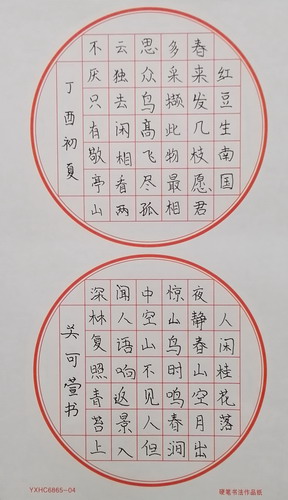 红豆生南国
春来发几枝愿君
多采撷此物最相
思众鸟高飞尽孤
云独去闲相看两
不厌只有敬亭山
丁酉初夏
人闲桂花落
夜静春山空月出
惊山鸟时鸣春涧
中空山不见人但
闻人语响返景入
深林复照青苔上
可萱书
YXHC6865-04
硬笔书法作品纸